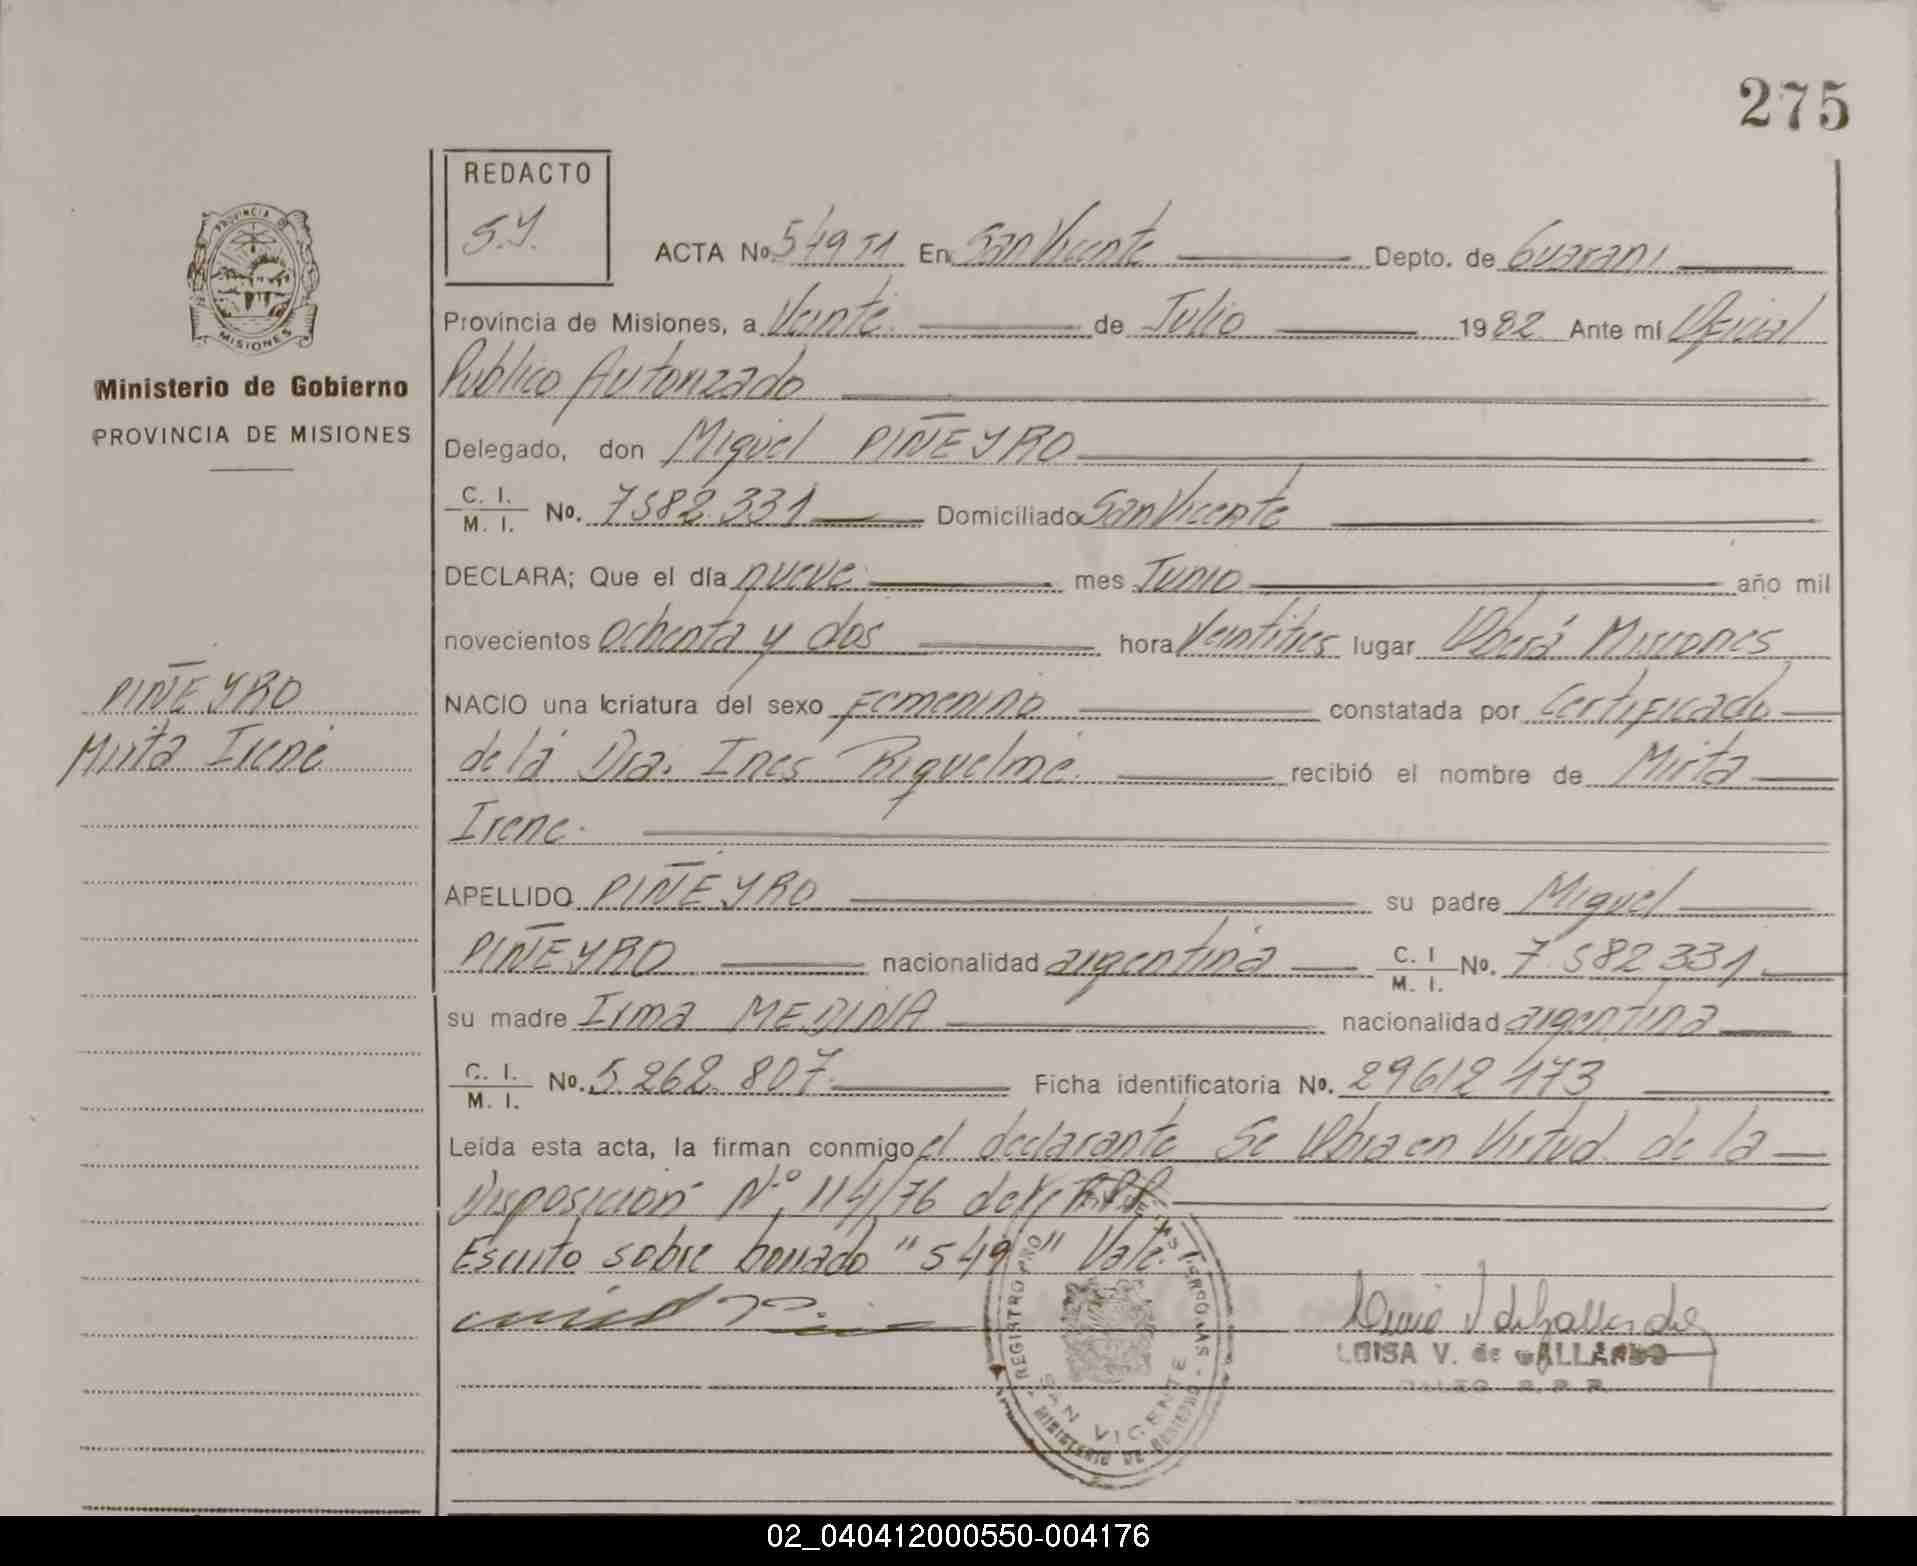 275
REDACTO
S.Y.
PROVINCIA DE
MISIONES
Ministerio de Gobierno
PROVINCIA DE MISIONES
ACTA No. 549 En San Vicente Depto. de Guarani
Provincia de Misiones, a Veinte de Julio 1982 Ante mí Oficial
Publico Autorizado
Delegado, don Miguel PIÑEYRO
C. I.
M. I. No. 7582.331 Domiciliado San Vicente
DECLARA; Que el día nueve mes Junio año mil
novecientos ochenta y dos hora Veintitres lugar Oberá Misiones
PIÑEYRO
Mirta Irene
NACIO una criatura del sexo Femenino constatada por Certificado
de la Dra. Ines Riquelme. recibió el nombre de Mirta
Irene.
APELLIDO PIÑEYRO su padre Miguel
PIÑEYRO nacionalidad argentina C. I
M. I. No. 7.582.331
su madre Irma MEDINA nacionalidad argentina
C. I.
M. I. No. 5.262.807. Ficha identificatoria No. 29612473
Leída esta acta, la firman conmigo el declarante Se Obra en Virtud de la
Disposicion Nº 114/76
Escrito sobre borrado "549" Vale.
REGISTRO PRO DE LAS PERSONAS - MINISTERIO DE GOBIERNO -
SAN VICENTE
LUISA V. de GALLARDO
R. P. P.
02_040412000550-004176